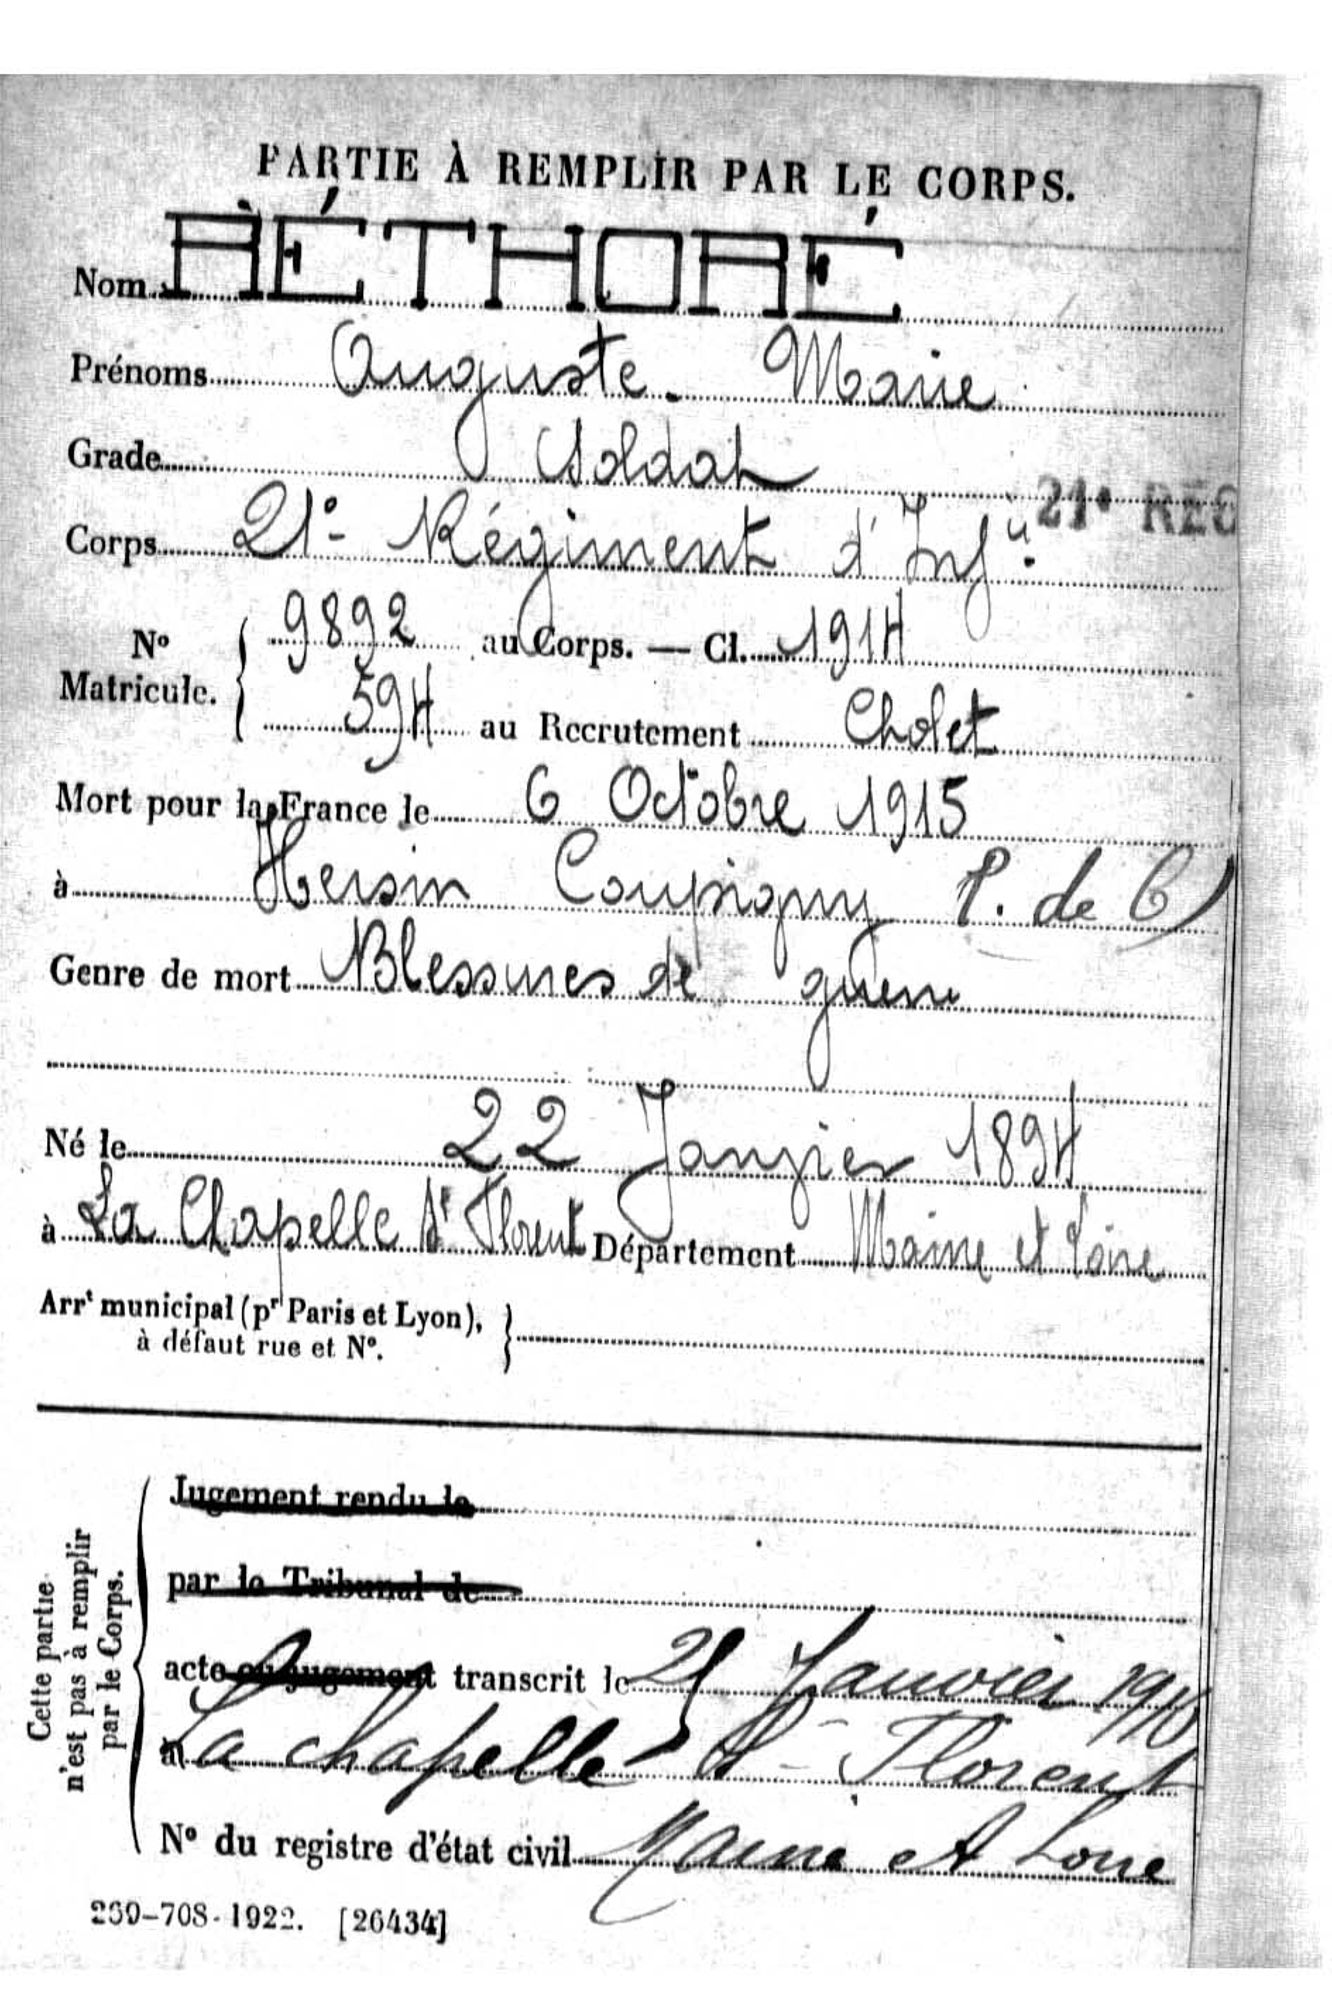 PARTIE À REMPLIR PAR LE CORPS.
Nom RÉTHORÉ
Prénoms Auguste Marie
Grade Soldat
21e RÉG
Corps 21e Régiment d'Infie
No Matricule. { 9892 au Corps. — Cl. 1914
594 au Recrutement Cholet
Mort pour la France le 6 Octobre 1915
à Hersin Coupigny P. de C)
Genre de mort Blessures de guerre
Né le 22 Janvier 1894
à La Chapelle St Florent Département Maine et Loire
Arrt municipal (pr Paris et Lyon), }
à défaut rue et No.
Cette partie n'est pas à remplir par le Corps.
Jugement rendu le
par le Tribunal de
acte ou jugement transcrit le Janvier
à La chapelle St Florent
No du registre d'état civil Maine et Loire
269-708-1922. [26434]